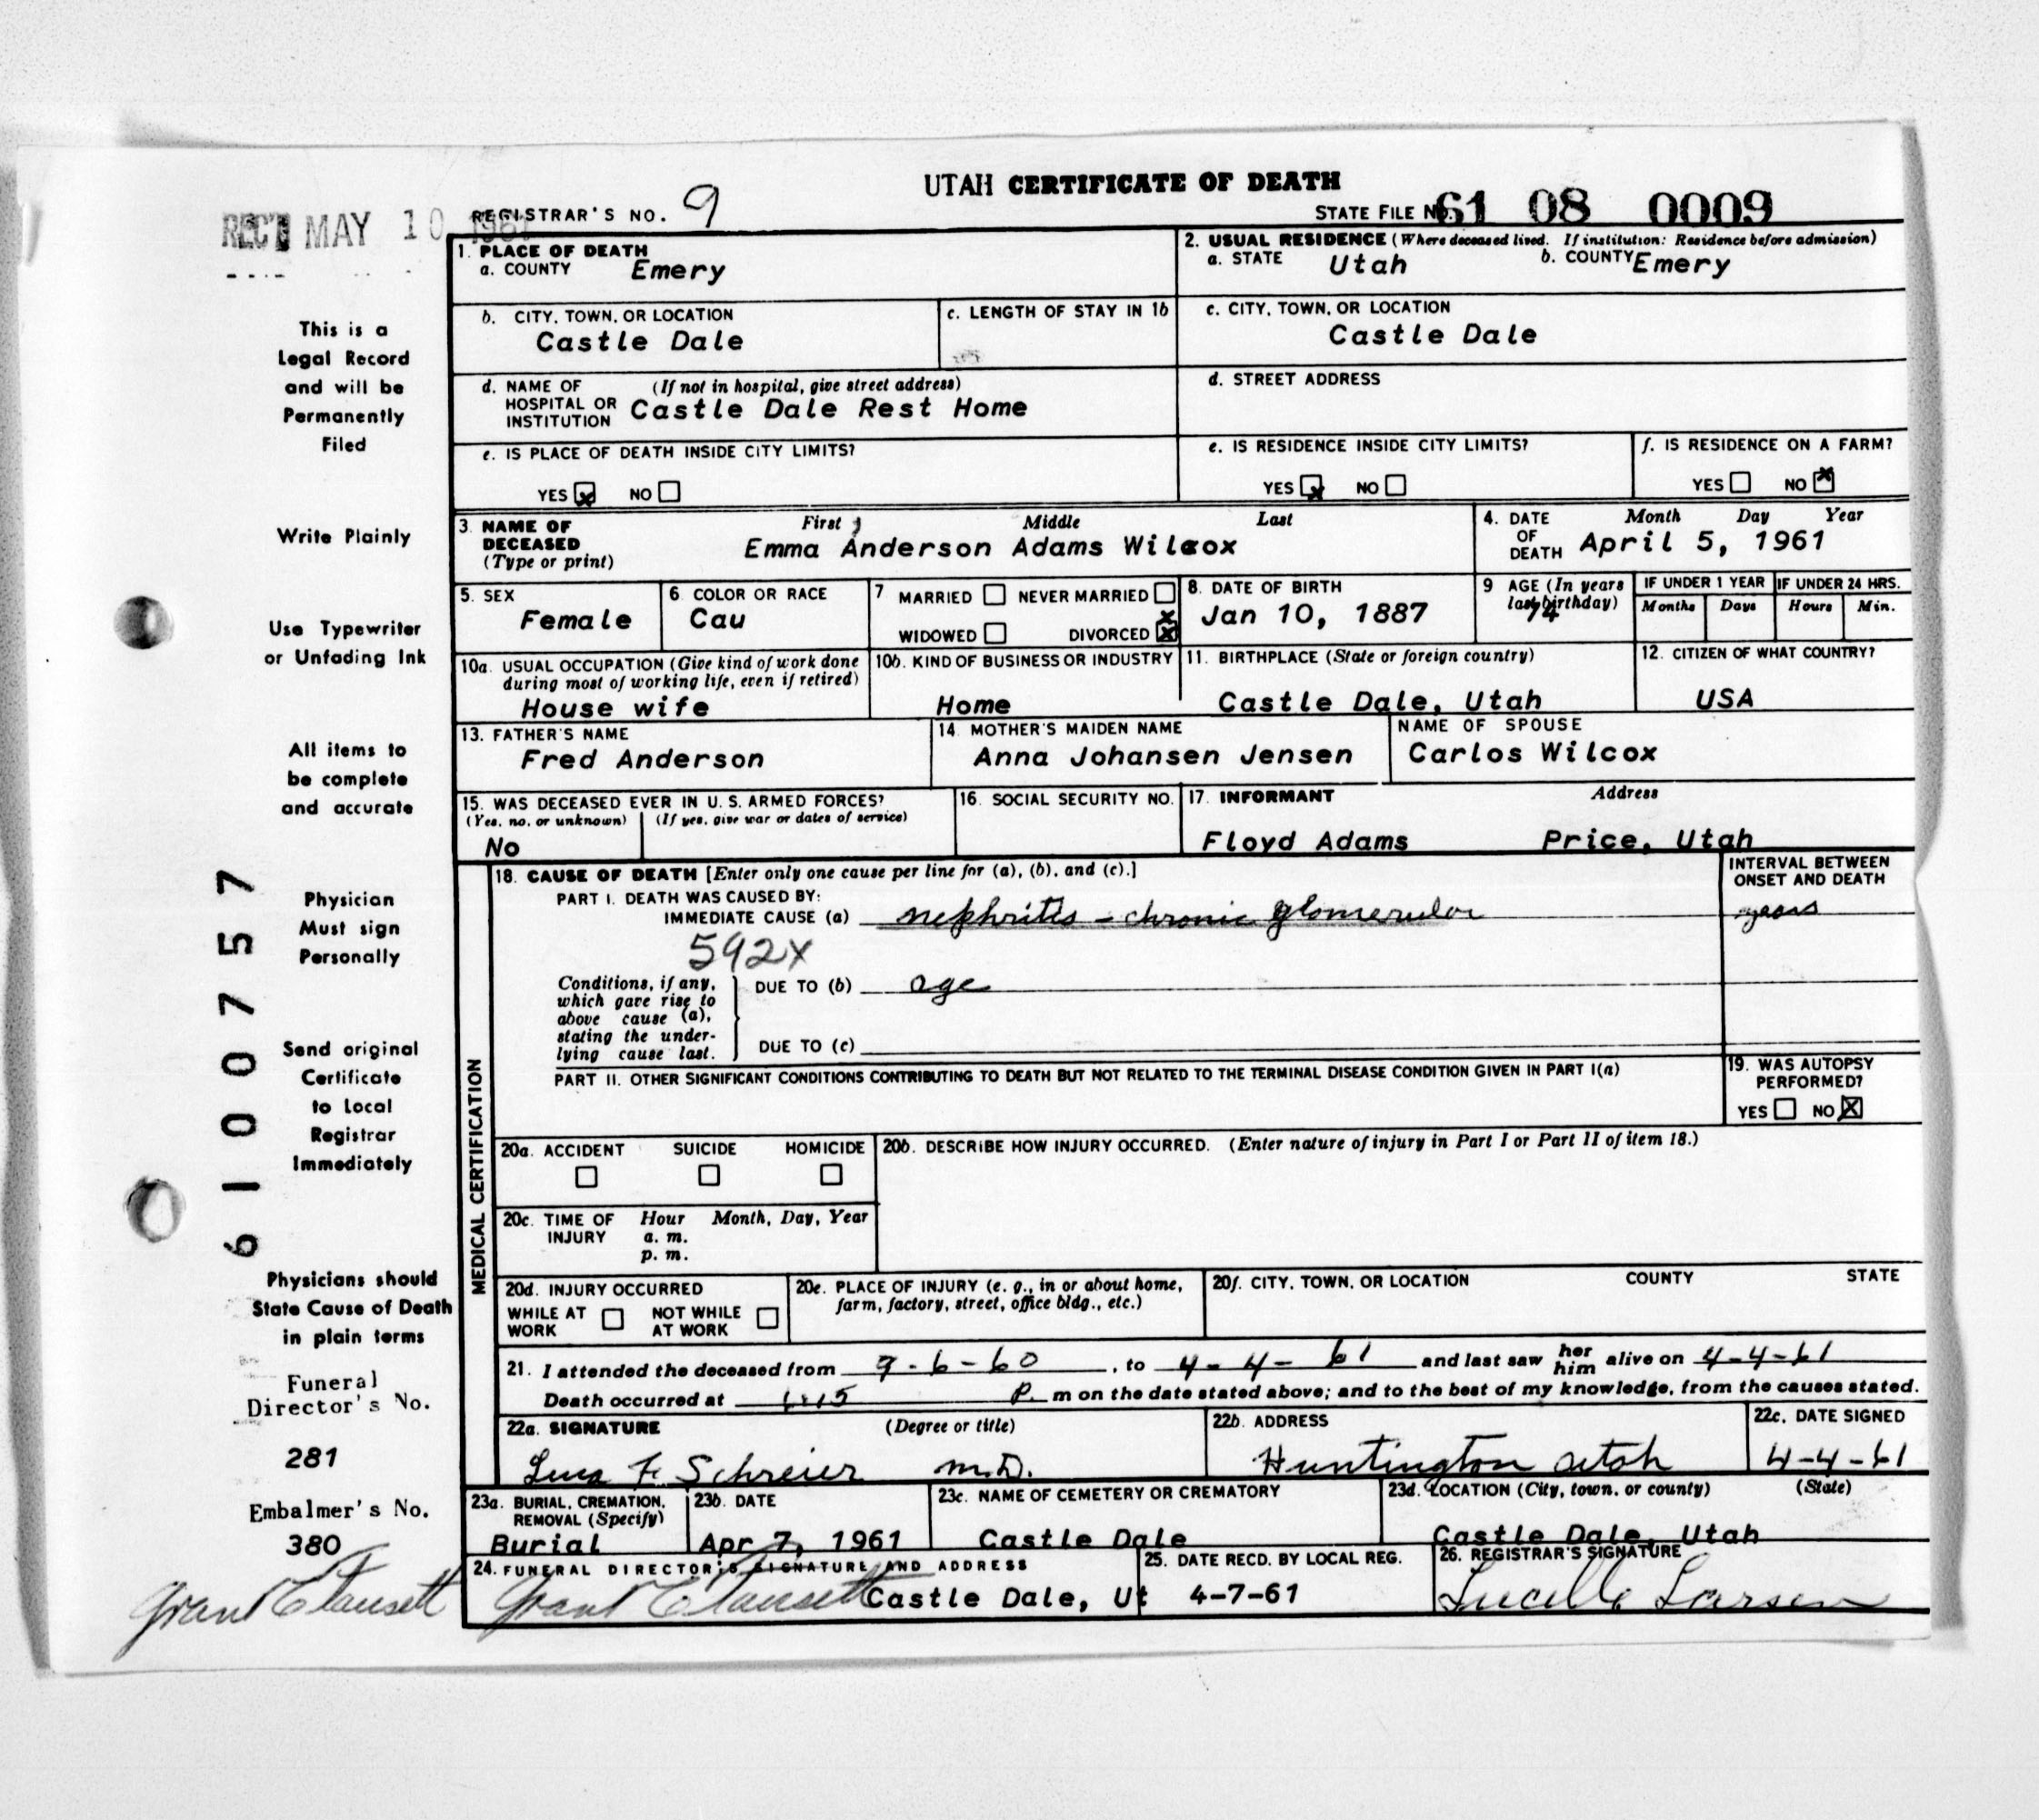 UTAH CERTIFICATE OF DEATH
REC'D MAY 10 1961
REGISTRAR'S NO. 9
STATE FILE NO. 61 08 0009
1. PLACE OF DEATH
a. COUNTY Emery
2. USUAL RESIDENCE (Where deceased lived. If institution: Residence before admission)
a. STATE Utah b. COUNTY Emery
b. CITY, TOWN, OR LOCATION
Castle Dale
c. LENGTH OF STAY IN 1b
c. CITY, TOWN, OR LOCATION
Castle Dale
d. NAME OF HOSPITAL OR INSTITUTION (If not in hospital, give street address)
Castle Dale Rest Home
d. STREET ADDRESS
e. IS PLACE OF DEATH INSIDE CITY LIMITS?
YES x NO
e. IS RESIDENCE INSIDE CITY LIMITS?
YES x NO
f. IS RESIDENCE ON A FARM?
YES NO x
3. NAME OF DECEASED (Type or print)
First Middle Last
Emma Anderson Adams Wilcox
4. DATE OF DEATH Month Day Year
April 5, 1961
5. SEX
Female
6. COLOR OR RACE
Cau
7 MARRIED NEVER MARRIED
WIDOWED DIVORCED x
8. DATE OF BIRTH
Jan 10, 1887
9 AGE (In years last birthday)
74
IF UNDER 1 YEAR
Months Days
IF UNDER 24 HRS.
Hours Min.
10a. USUAL OCCUPATION (Give kind of work done during most of working life, even if retired)
House wife
10b. KIND OF BUSINESS OR INDUSTRY
Home
11. BIRTHPLACE (State or foreign country)
Castle Dale, Utah
12. CITIZEN OF WHAT COUNTRY?
USA
13. FATHER'S NAME
Fred Anderson
14. MOTHER'S MAIDEN NAME
Anna Johansen Jensen
NAME OF SPOUSE
Carlos Wilcox
15. WAS DECEASED EVER IN U. S. ARMED FORCES?
(Yes, no, or unknown) (If yes, give war or dates of service)
No
16. SOCIAL SECURITY NO.
17. INFORMANT Address
Floyd Adams Price, Utah
MEDICAL CERTIFICATION
18. CAUSE OF DEATH [Enter only one cause per line for (a), (b), and (c).]
INTERVAL BETWEEN ONSET AND DEATH
PART I. DEATH WAS CAUSED BY:
IMMEDIATE CAUSE (a) nephritis - chronic glomerular years
592X
Conditions, if any, which gave rise to above cause (a), stating the underlying cause last.
DUE TO (b) age
DUE TO (c)
PART II. OTHER SIGNIFICANT CONDITIONS CONTRIBUTING TO DEATH BUT NOT RELATED TO THE TERMINAL DISEASE CONDITION GIVEN IN PART I(a)
19. WAS AUTOPSY PERFORMED?
YES NO X
20a. ACCIDENT SUICIDE HOMICIDE
20b. DESCRIBE HOW INJURY OCCURRED. (Enter nature of injury in Part I or Part II of item 18.)
20c. TIME OF INJURY Hour Month, Day, Year
a. m.
p. m.
20d. INJURY OCCURRED
WHILE AT WORK NOT WHILE AT WORK
20e. PLACE OF INJURY (e. g., in or about home, farm, factory, street, office bldg., etc.)
20f. CITY, TOWN, OR LOCATION COUNTY STATE
21. I attended the deceased from 9-6-60, to 4-4-61 and last saw her him alive on 4-4-61
Death occurred at 1:15 P. m on the date stated above; and to the best of my knowledge, from the causes stated.
22a. SIGNATURE (Degree or title)
F. Schreier M.D.
22b. ADDRESS
Huntington Utah
22c. DATE SIGNED
4-4-61
23a. BURIAL, CREMATION, REMOVAL (Specify)
Burial
23b. DATE
Apr 7, 1961
23c. NAME OF CEMETERY OR CREMATORY
Castle Dale
23d. LOCATION (City, town, or county) (State)
Castle Dale, Utah
24. FUNERAL DIRECTOR'S SIGNATURE AND ADDRESS
Grant Castle Dale, Ut
25. DATE RECD. BY LOCAL REG.
4-7-61
26. REGISTRAR'S SIGNATURE
Lucille Larsen
This is a
Legal Record
and will be
Permanently
Filed
Write Plainly
Use Typewriter
or Unfading Ink
All items to
be complete
and accurate
Physician
Must sign
Personally
Send original
Certificate
to Local
Registrar
Immediately
Physicians should
State Cause of Death
in plain terms
Funeral
Director's No.
281
Embalmer's No.
380
Grant
6100757